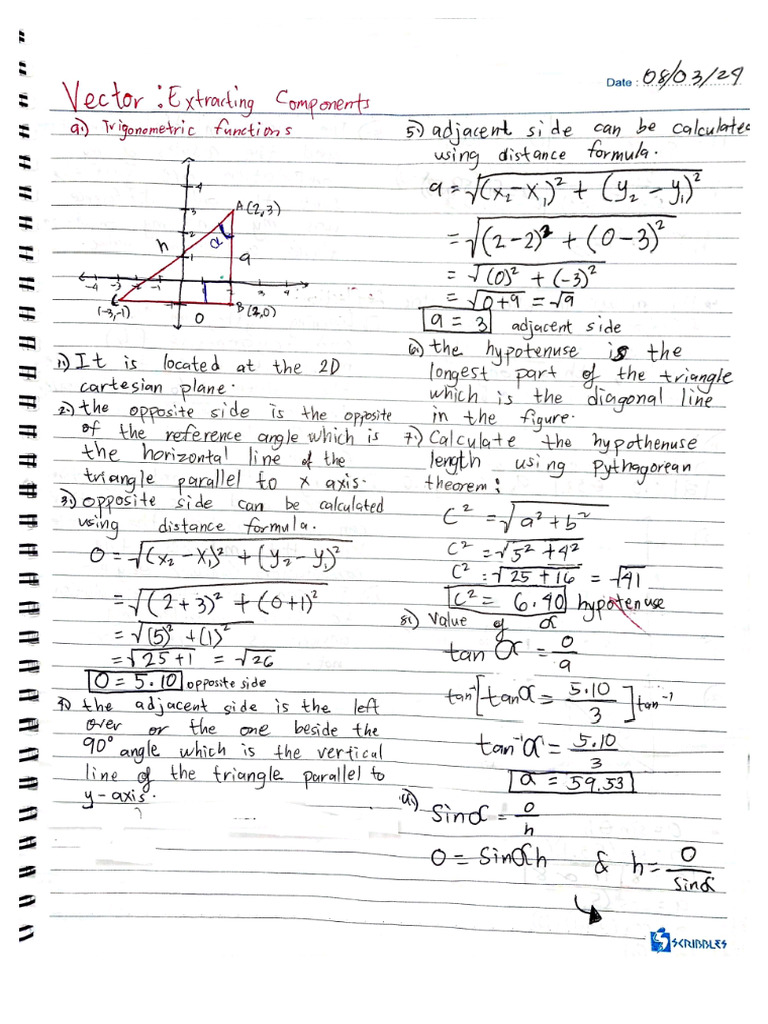 Date : 08/03/24
Vector : Extracting Components
a.) Trigonometric functions
4
3
A (2,3)
2
h
α
1
a
-4 -3 -2 -1 1 2 3 4
(-3,-1)
-1
B (2,0)
O
1.) It is located at the 2D
cartesian plane.
2.) the opposite side is the opposite
of the reference angle which is
the horizontal line of the
triangle parallel to x axis.
3.) opposite side can be calculated
using distance formula.
O = √(x₂ - x₁)² + (y₂ - y₁)²
= √(2+3)² + (0+1)²
= √(5)² + (1)²
= √25+1 = √26
O = 5.10 opposite side
4.) the adjacent side is the left
over or the one beside the
90° angle which is the vertical
line of the triangle parallel to
y-axis.
5.) adjacent side can be calculated
using distance formula.
a = √(x₂ - x₁)² + (y₂ - y₁)²
= √(2-2)² + (0-3)²
= √(0)² + (-3)²
= √0+9 = √9
a = 3 adjacent side
6.) the hypotenuse is the
longest part of the triangle
which is the diagonal line
in the figure.
7.) Calculate the hypothenuse
length using Pythagorean
theorem:
C² = √a² + b²
C² = √5² + 4²
C² = √25 + 16 = √41
C² = 6.40 hypotenuse
8.) Value of α
tan α = o/a
tan⁻¹[tan α = 5.10/3] tan⁻¹
tan⁻¹ α = 5.10/3
α = 59.53
Sin α = o/h
O = Sin α h & h = O/sin α
SCRIBBLES